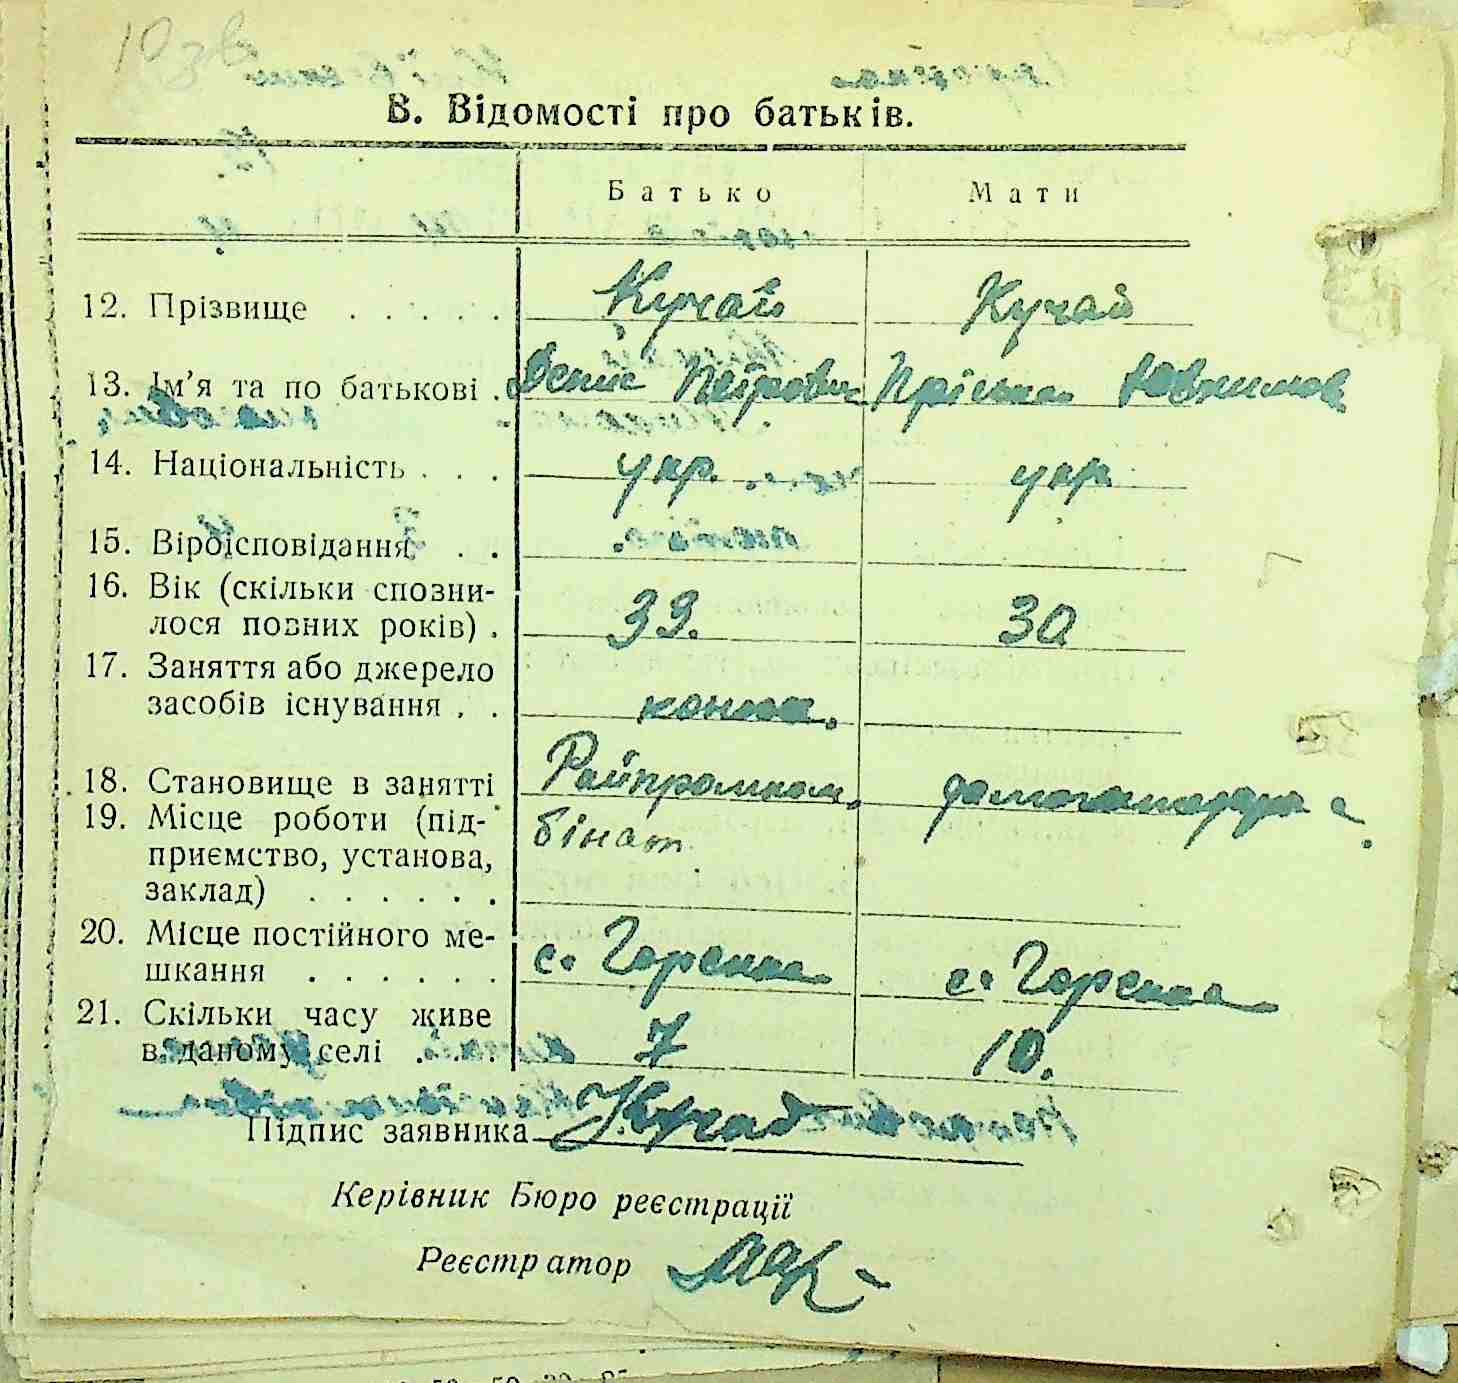 В. Відомості про батьків.
Батько Мати
12. Прізвище . . . . . Кучай Кучай
13. Ім’я та по батькові . Денис Петрович Пріська Ювхимов.
14. Національність . . . укр. укр
15. Віроісповідання . .
16. Вік (скільки сповни-
лося повних років) . 39. 30
17. Заняття або джерело
засобів існування . .
18. Становище в занятті Райпромком. домогосподарка
19. Місце роботи (під- бінат
приємство, установа,
заклад) . . . . . .
20. Місце постійного ме- с. Горенка с. Горенка
шкання . . . . . .
21. Скільки часу живе
в даному селі . . . . 7 10.
Підпис заявника Кучай
Керівник Бюро реєстрації
Реєстратор